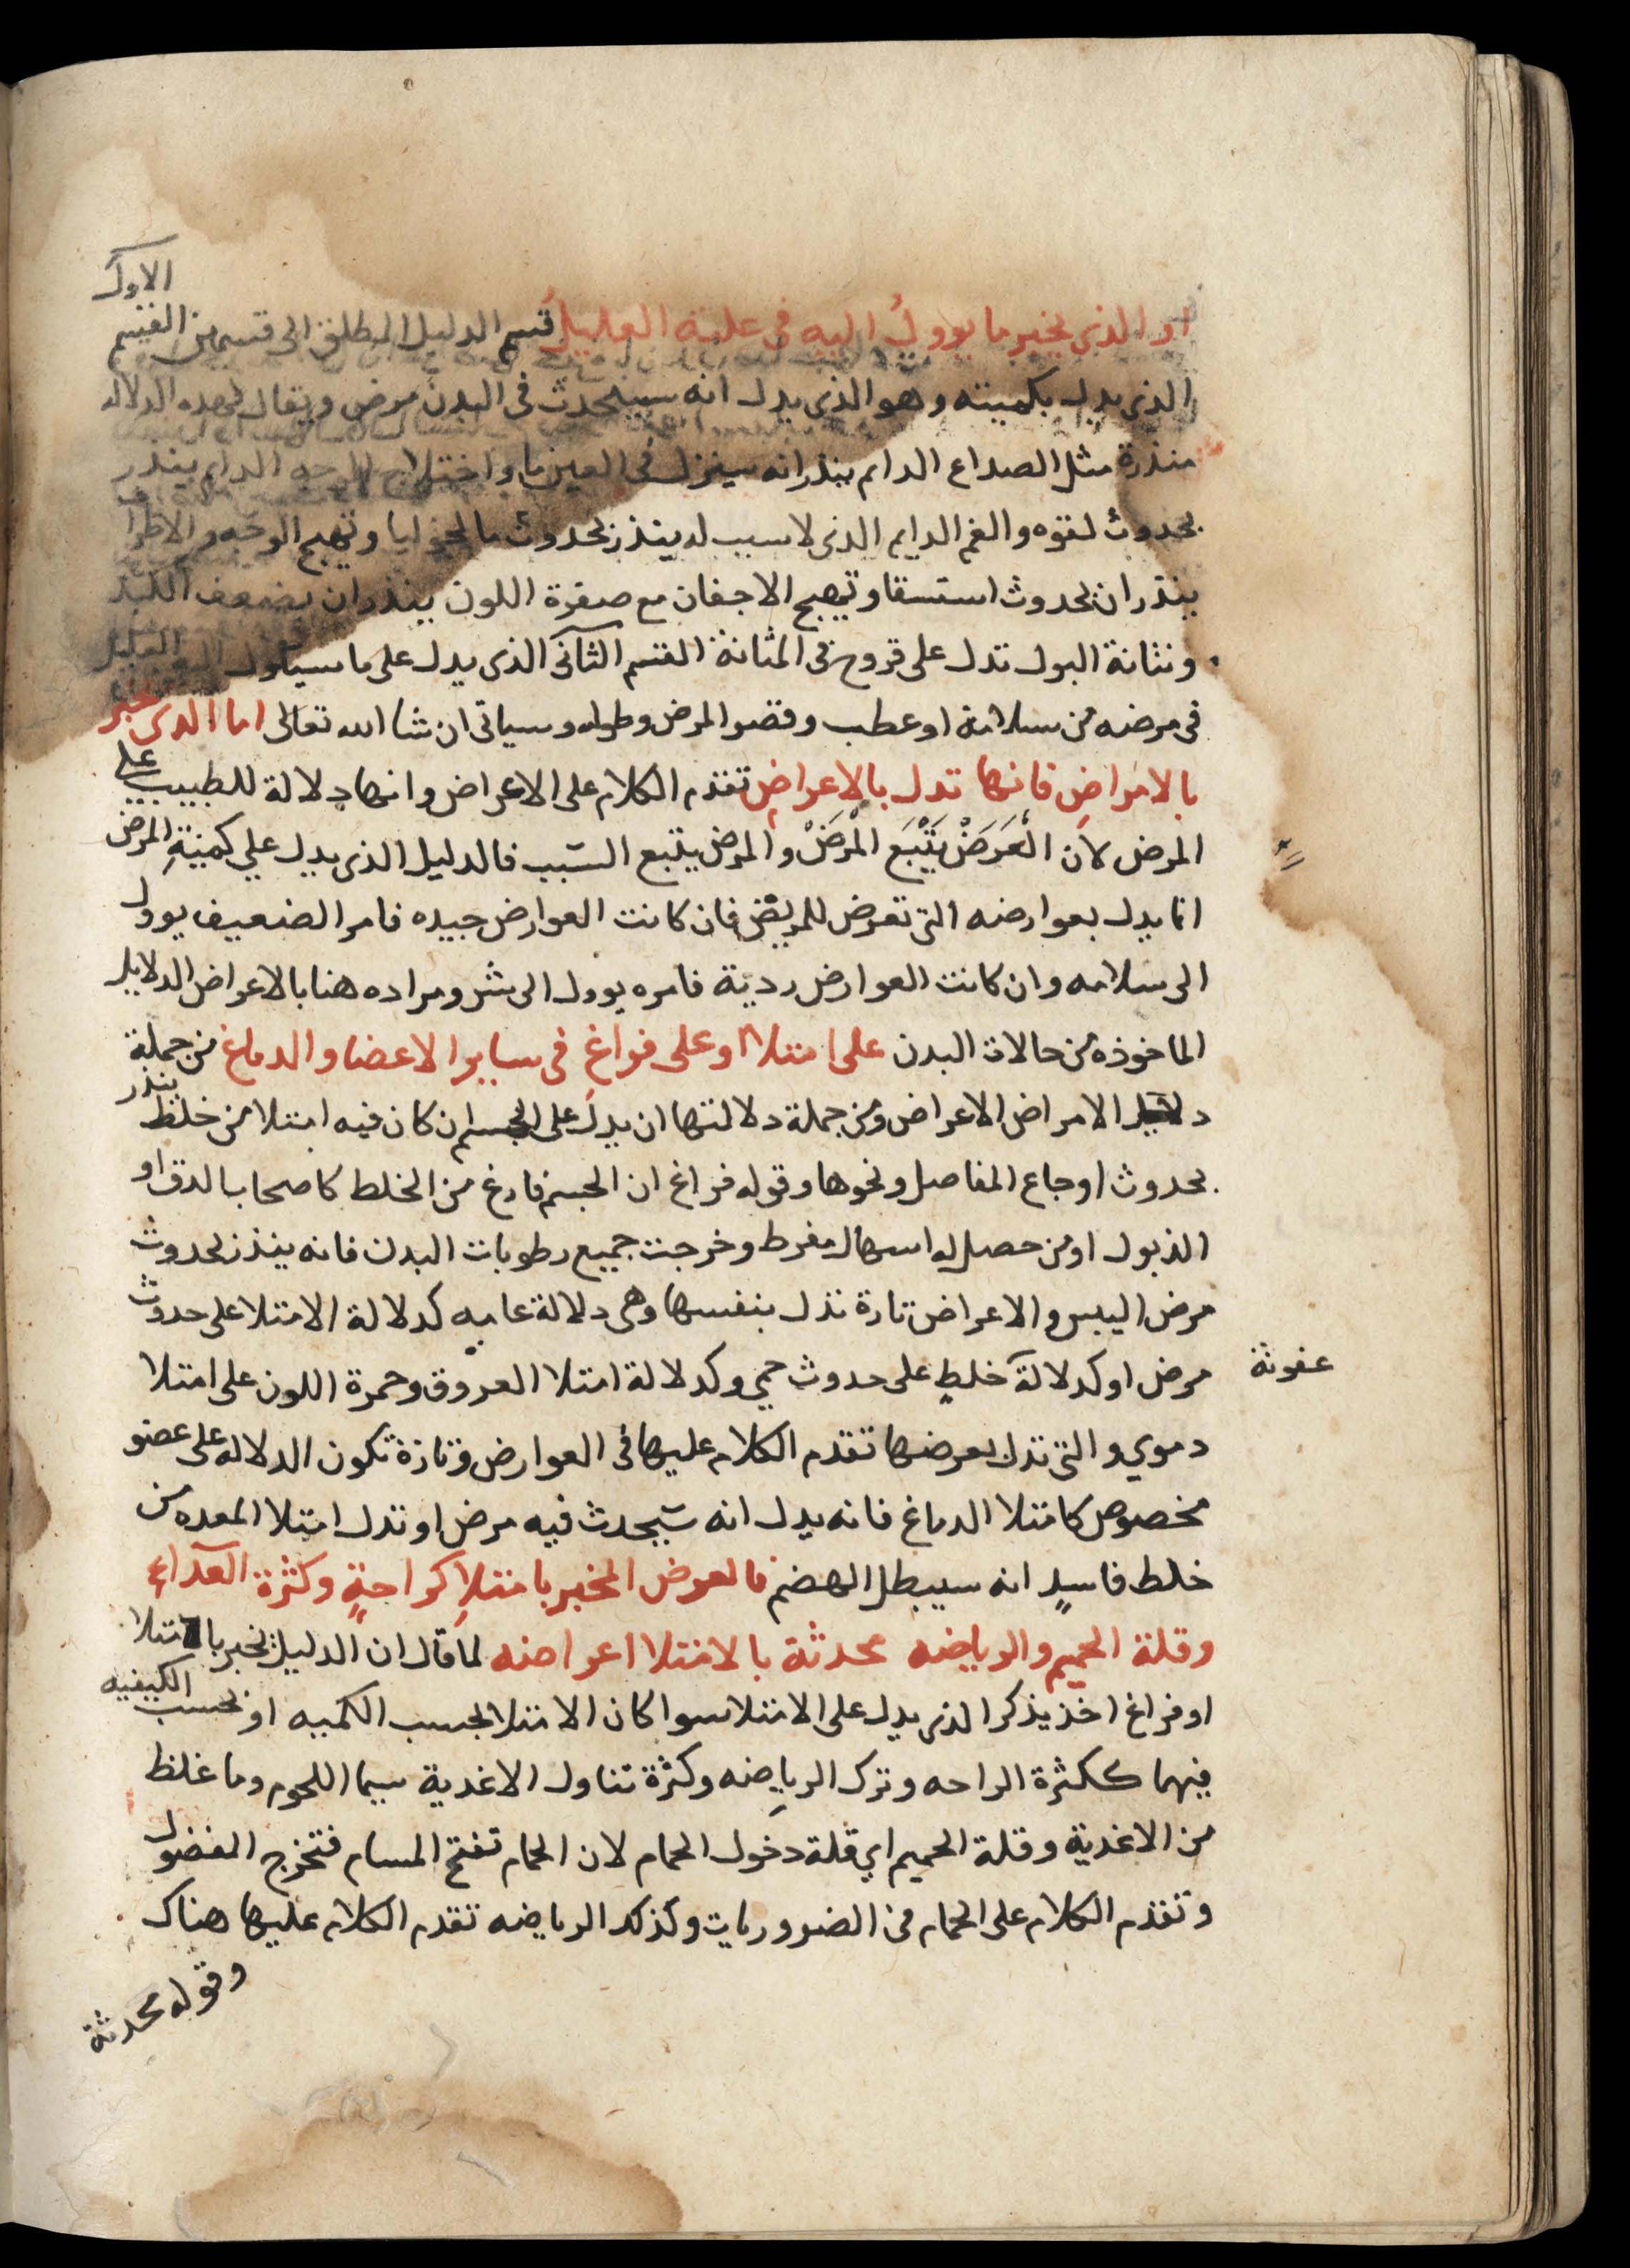 او الذي يخبر ما يوول اليه في علمه العليل قسم الدليل المطلق الى قسمين القسم الاول
الذي يدل بكميته وهو الذي يدل انه سيحدث في البدن مرض ويقال لهذه الدلاله
منذرة مثل الصداع الدايم ينذر انه سينزل في العين ما واختلاج الوجه الدايم ينذر
بحدوث لقوه والغم الدايم الذي لا سبب له ينذر بحدوث مالخوليا وتهبج الوجه والاطرا
ينذران بحدوث استسقا وتهبج الاجفان مع صفرة اللون ينذران بضعف الكبد
ونتانة البول تدل على قروح في المثانة القسم الثاني الذي يدل على ما سياول العليل
في مرضه من سلامة او عطب وقصر المرض وطوله وسياتي ان شا الله تعالى اما الذي يخبر
بالامراض فانها تدل بالاعراض تقدم الكلام على الاعراض وانها دلالة للطبيب على
المرض لان العرض يتبع المرض والمرض يتبع السبب فالدليل الذي يدل علي كمية المرض
انما يدل بعوارضه التي تعرض للمريض فان كانت العوارض جيده فامر الضعيف يوول
الى سلامه وان كانت العوارض ردية فامره يوول الى شر ومراده هنا بالاعراض الدلايل
الماخوذه من حالات البدن على امتلا او على فراغ في ساير الاعضا والدماغ من جملة
دلايل الامراض الاعراض ومن جملة دلالتها ان يدل على الجسم ان كان فيه امتلا من خلط ينذر
بحدوث اوجاع المفاصل ونحوها وقوله فراغ ان الجسم فارغ من الخلط كاصحاب الدق او
الذبول او من حصل له اسهال مفرط وخرجت جميع رطوبات البدن فانه ينذر بحدوث
مرض اليبس والاعراض تارة تدل بنفسها وهي دلالة عاميه كدلالة الامتلا على حدوث
مرض او كدلالة خلط على حدوث حمي وكدلالة امتلا العروق وحمرة اللون على امتلا
عفونة
دموي والتي تدل بعرضها تقدم الكلام عليها في العوارض وتارة تكون الدلاله على عضو
مخصوص كامتلا الدماغ فانه يدل انه سيحدث فيه مرض او تدل امتلا المعده من
خلط فاسد انه سيبطل الهضم فالعرض المخبر بامتلا كراحة وكثرة الغذاء
وقلة الحميم والرياضه محدثة بالامتلا اعراضه لما قال ان الدليل يخبر بالامتلا
او فراغ اخذ يذكر الذي يدل على الامتلا سوا كان الامتلا بحسب الكميه او بحسب الكيفيه
فيهما ككثرة الراحه وترك الرياضه وكثرة تناول الاغدية سيما اللحوم وما غلظ
من الاغدية وقلة الحميم اي قلة دخول الحمام لان الحمام تفتح المسام فتخرج الفضول
وتقدم الكلام على الحمام في الضروريات وكذلك الرياضه تقدم الكلام عليها هناك
وقوله محدثة